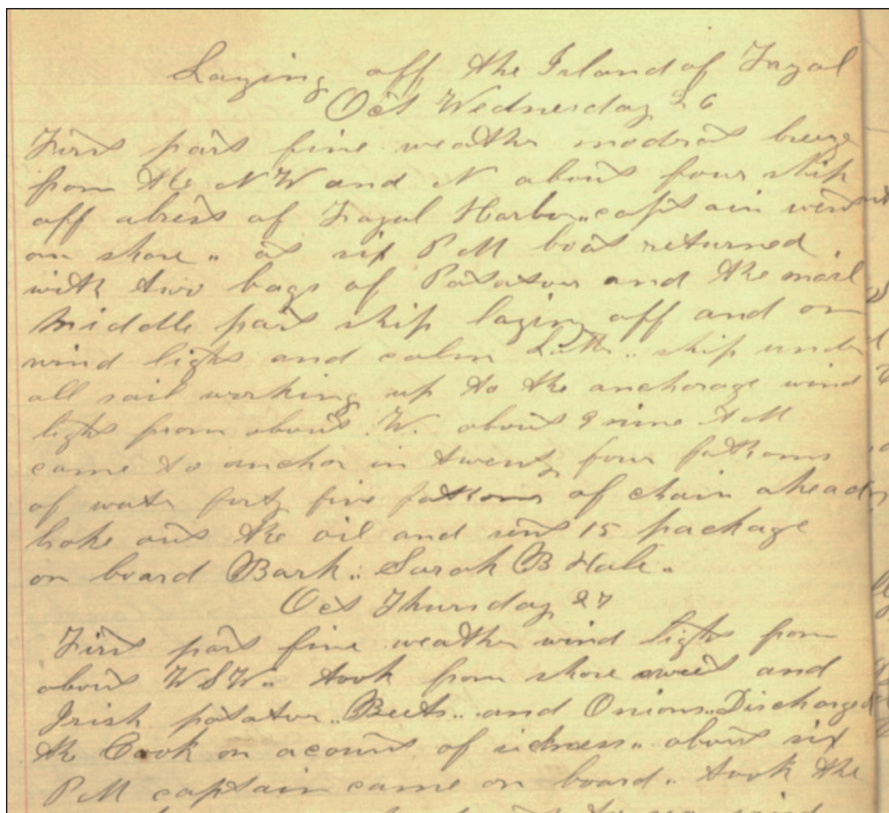 Laying off the Island of Fayal
Oct Wednesday 26
First part fine weather moderat breeze
from the NW and N about four ship
off abrest of Fayal Harbor.. captain went
on shore.. at six PM boat returned
with two bags of Potatoes and the mail
Middle part ship laying off and on
wind light and calm Latter.. ship under
all sail working up to the anchorage wind
light from about W. about 9 nine AM
came to anchor in twenty four fathoms
of water forty five fathoms of chain ahead
broke out the oil and sent 15 package
on board Bark.. Sarah B Hale..
Oct Thursday 27
First part fine weather wind light from
about WSW.. took from shore sweet and
Irish potatoes.. Beets.. and Onions.. Discharged
the Cook on acount of sickness.. about six
PM captain came on board.. took the